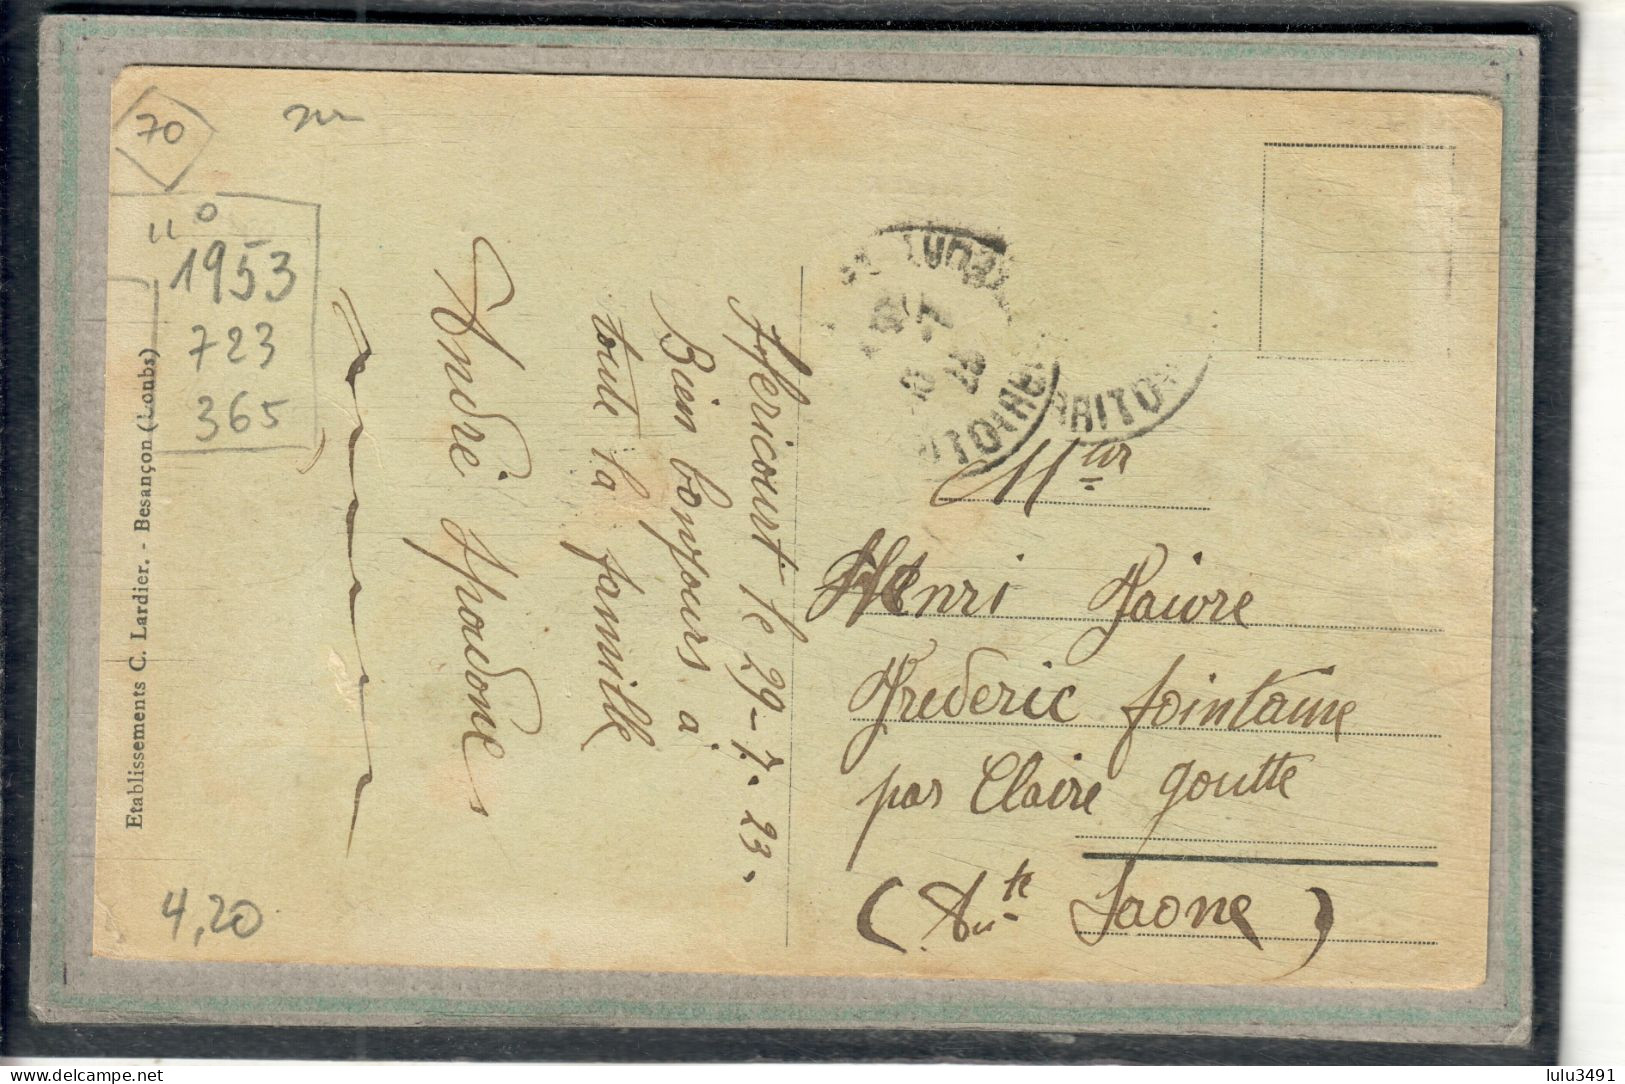 70
n°
1953
723
365
4,20
Etablissements C. Lardier. - Besançon (Doubs)
Hericourt le 29-7.23.
Bien bonjours à
toute la famille
André Spadone
Mr
Henri Faivre
Frederic fointaine
par Claire goutte
(Hte Saone)
lulu3491